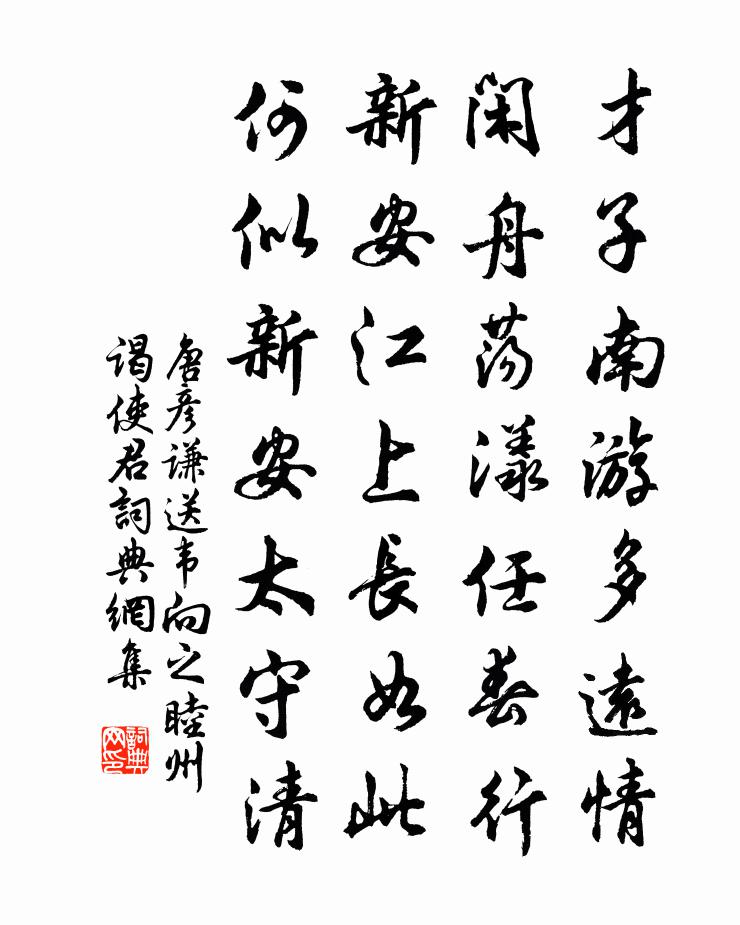 才子南游多遠情
閑舟蕩漾任春行
新安江上長如此
何似新安太守清
唐彦谦送韦向之睦州
谒使君詞典網集
詞典网印